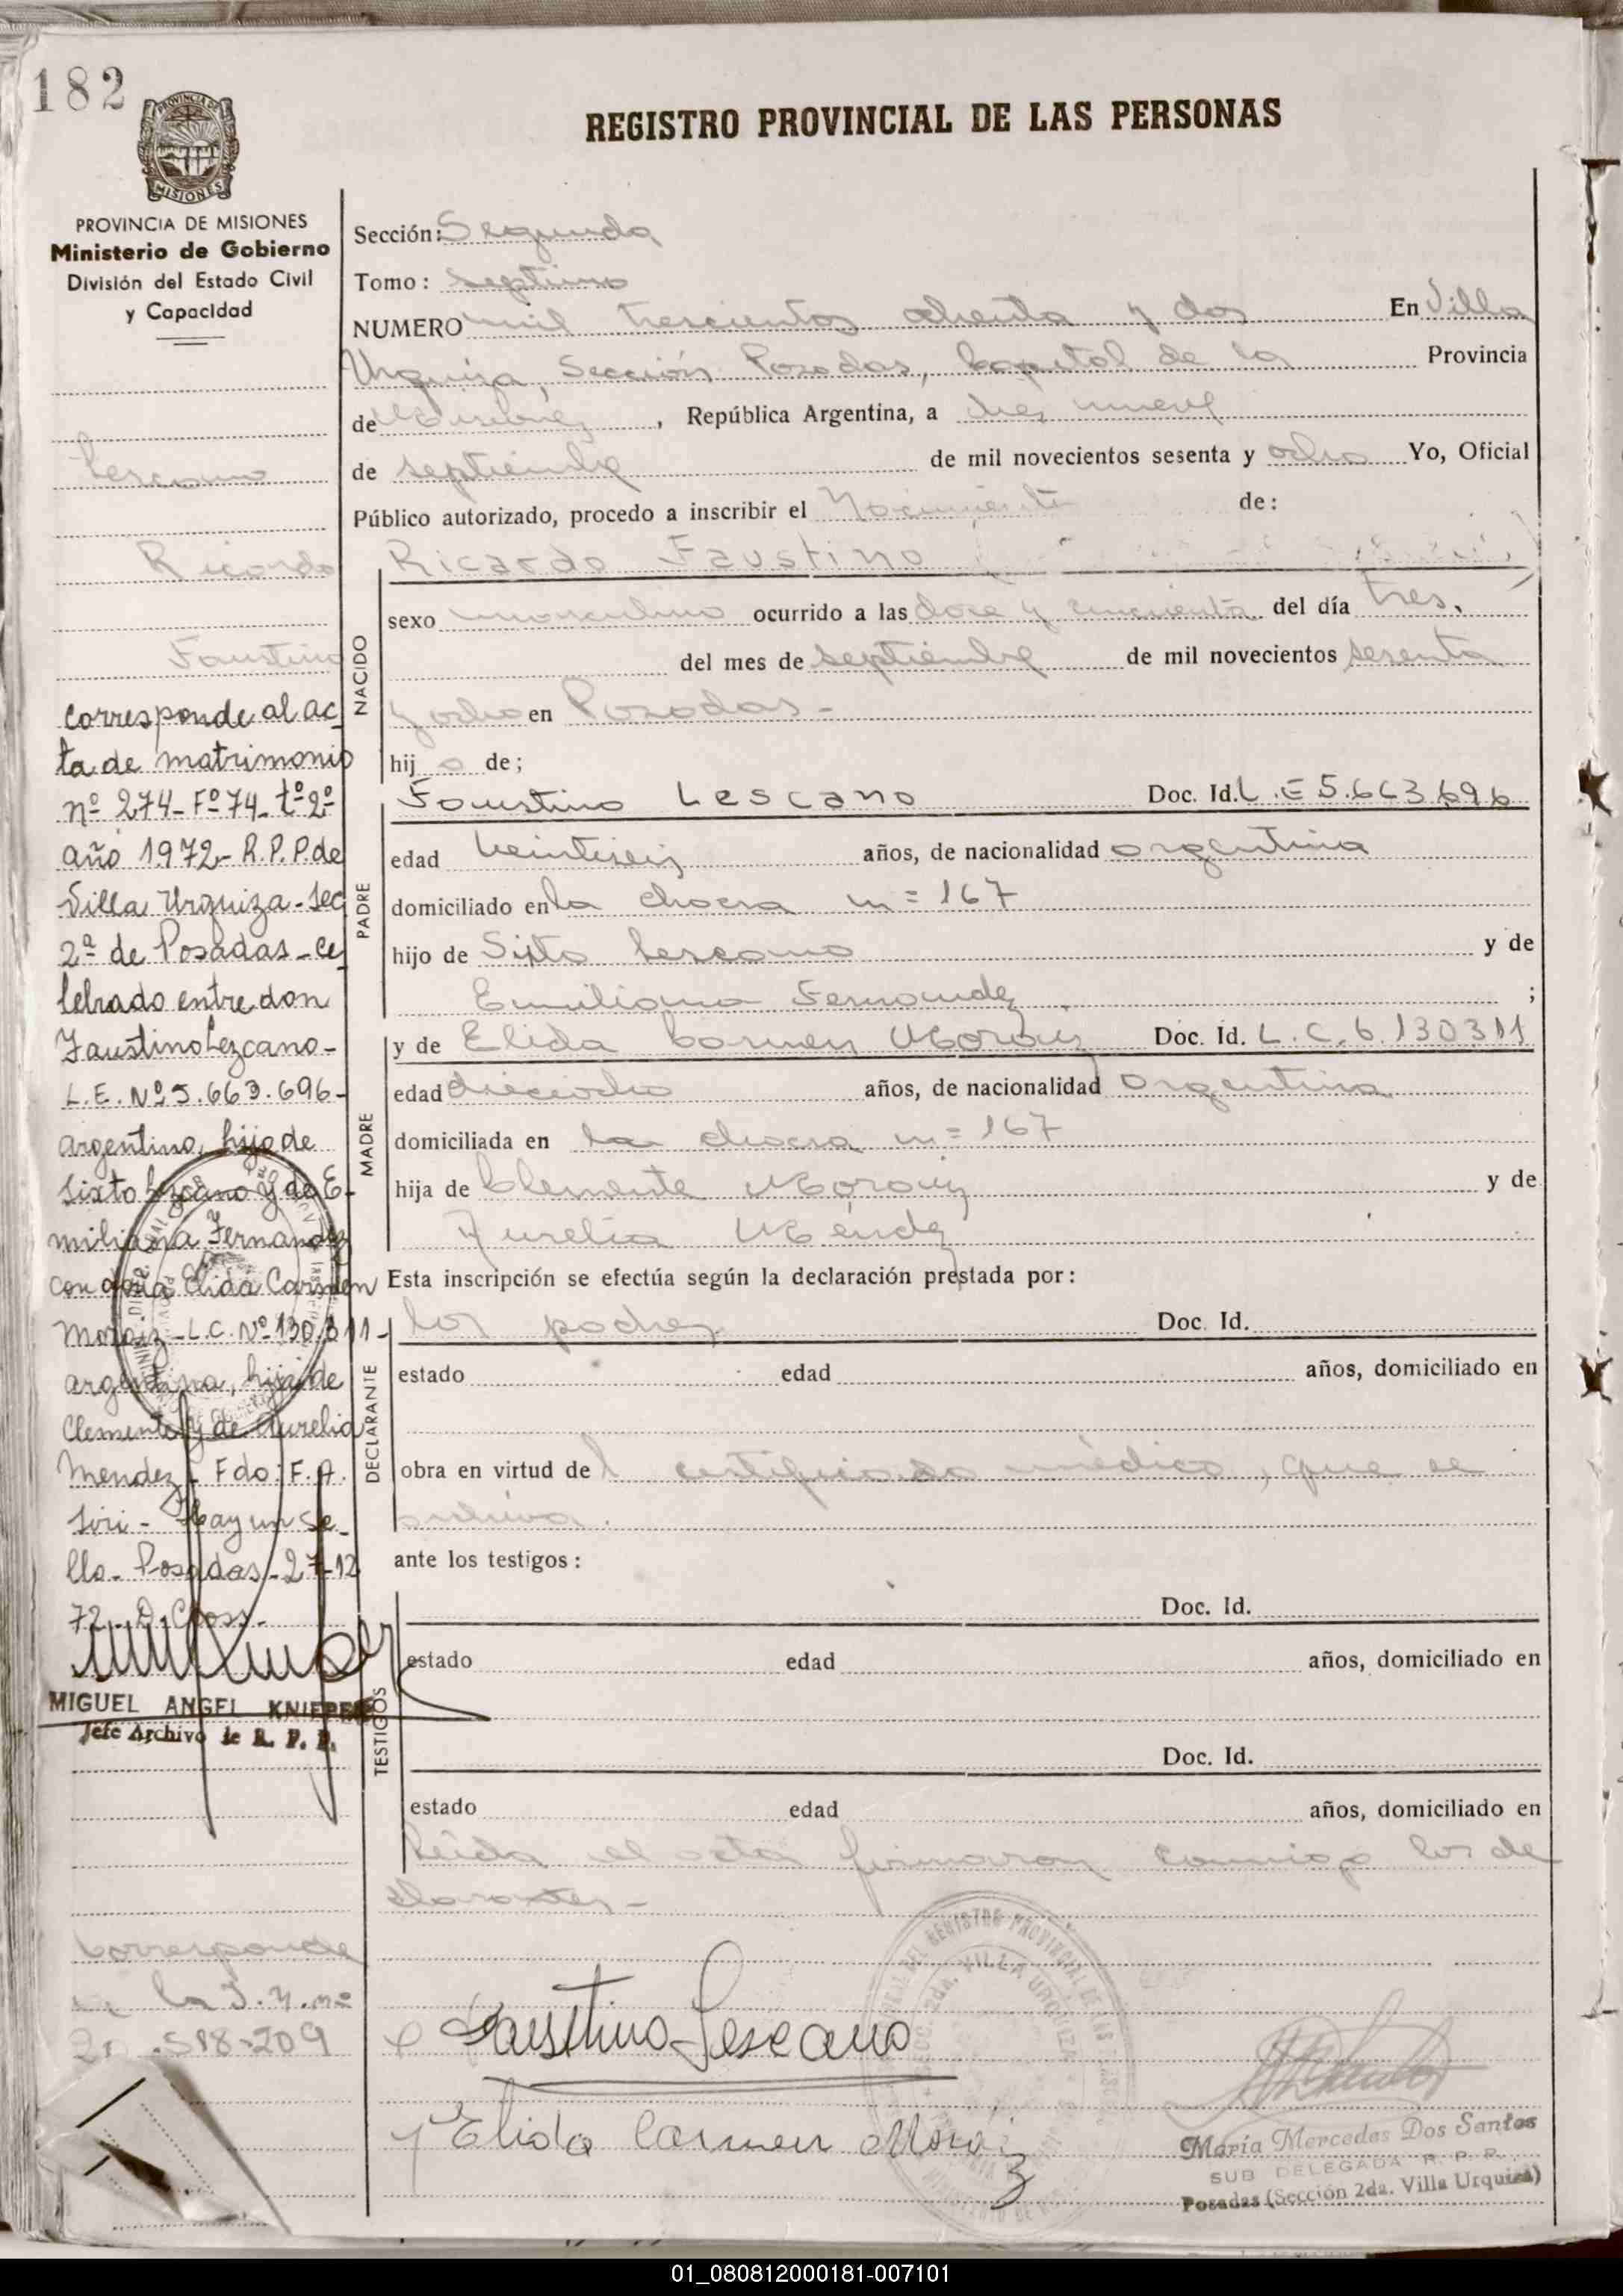 182
REGISTRO PROVINCIAL DE LAS PERSONAS
PROVINCIA DE MISIONES
Ministerio de Gobierno
División del Estado Civil
y Capacidad
Lescano
Ricardo
Faustino
corresponde al ac
ta de matrimonio
nº 274-Fº 74-tº 2º
año 1972- R.P.P. de
Villa Urquiza-Sec
2ª de Posadas-ce
lebrado entre don
Faustino Lezcano-
L.E. Nº 5.663.696-
argentino, hijo de
Sixto Lezcano y de E-
miliana Fernandez
con doña Elida Carmen
Moraiz-L.C. Nº 130.311-
argentina, hija de
Clemente y de Aurelia
Mendez- Fdo: F.A.
Siri- Hay un Se-
llo- Posadas-27-12
72-
MIGUEL ANGEL KNIEPER
Jefe Archivo de R. P. P.
Corresponde
a la
518-209
Sección: Segunda
Tomo: septimo
NUMERO mil trescientos ochenta y dos En Villa
Urquiza, Sección Posadas, Capital de la Provincia
de Misiones, República Argentina, a diez nueve
de septiembre de mil novecientos sesenta y ocho Yo, Oficial
Público autorizado, procedo a inscribir el Nacimiento de:
Ricardo Faustino
NACIDO
sexo masculino ocurrido a las doce y cincuenta del día tres.
del mes de septiembre de mil novecientos sesenta
y ocho en Posadas-
hijo de;
PADRE
Faustino Lescano Doc. Id. L.E 5.663.696
edad veintiseis años, de nacionalidad argentina
domiciliado en la chacra nº 167
hijo de Sixto Lescano y de
Emiliana Fernandez;
MADRE
y de Elida Carmen Moraiz Doc. Id. L.C. 6.130311
edad dieciocho años, de nacionalidad argentina
domiciliada en la chacra nº 167
hija de Clemente Moraiz y de
Aurelia Méndez
Esta inscripción se efectúa según la declaración prestada por:
DECLARANTE
los padres Doc. Id.
estado edad años, domiciliado en
obra en virtud del certificado médico, que se
archiva.
ante los testigos:
TESTIGOS
Doc. Id.
estado edad años, domiciliado en
Doc. Id.
estado edad años, domiciliado en
Leída el acta firmaron conmigo los de
clarantes-
Faustino Lescano
Elida Carmen Moraiz
María Mercedes Dos Santos
SUB DELEGADA R. P. P.
Posadas (Sección 2da. Villa Urquiza)
01_080812000181-007101